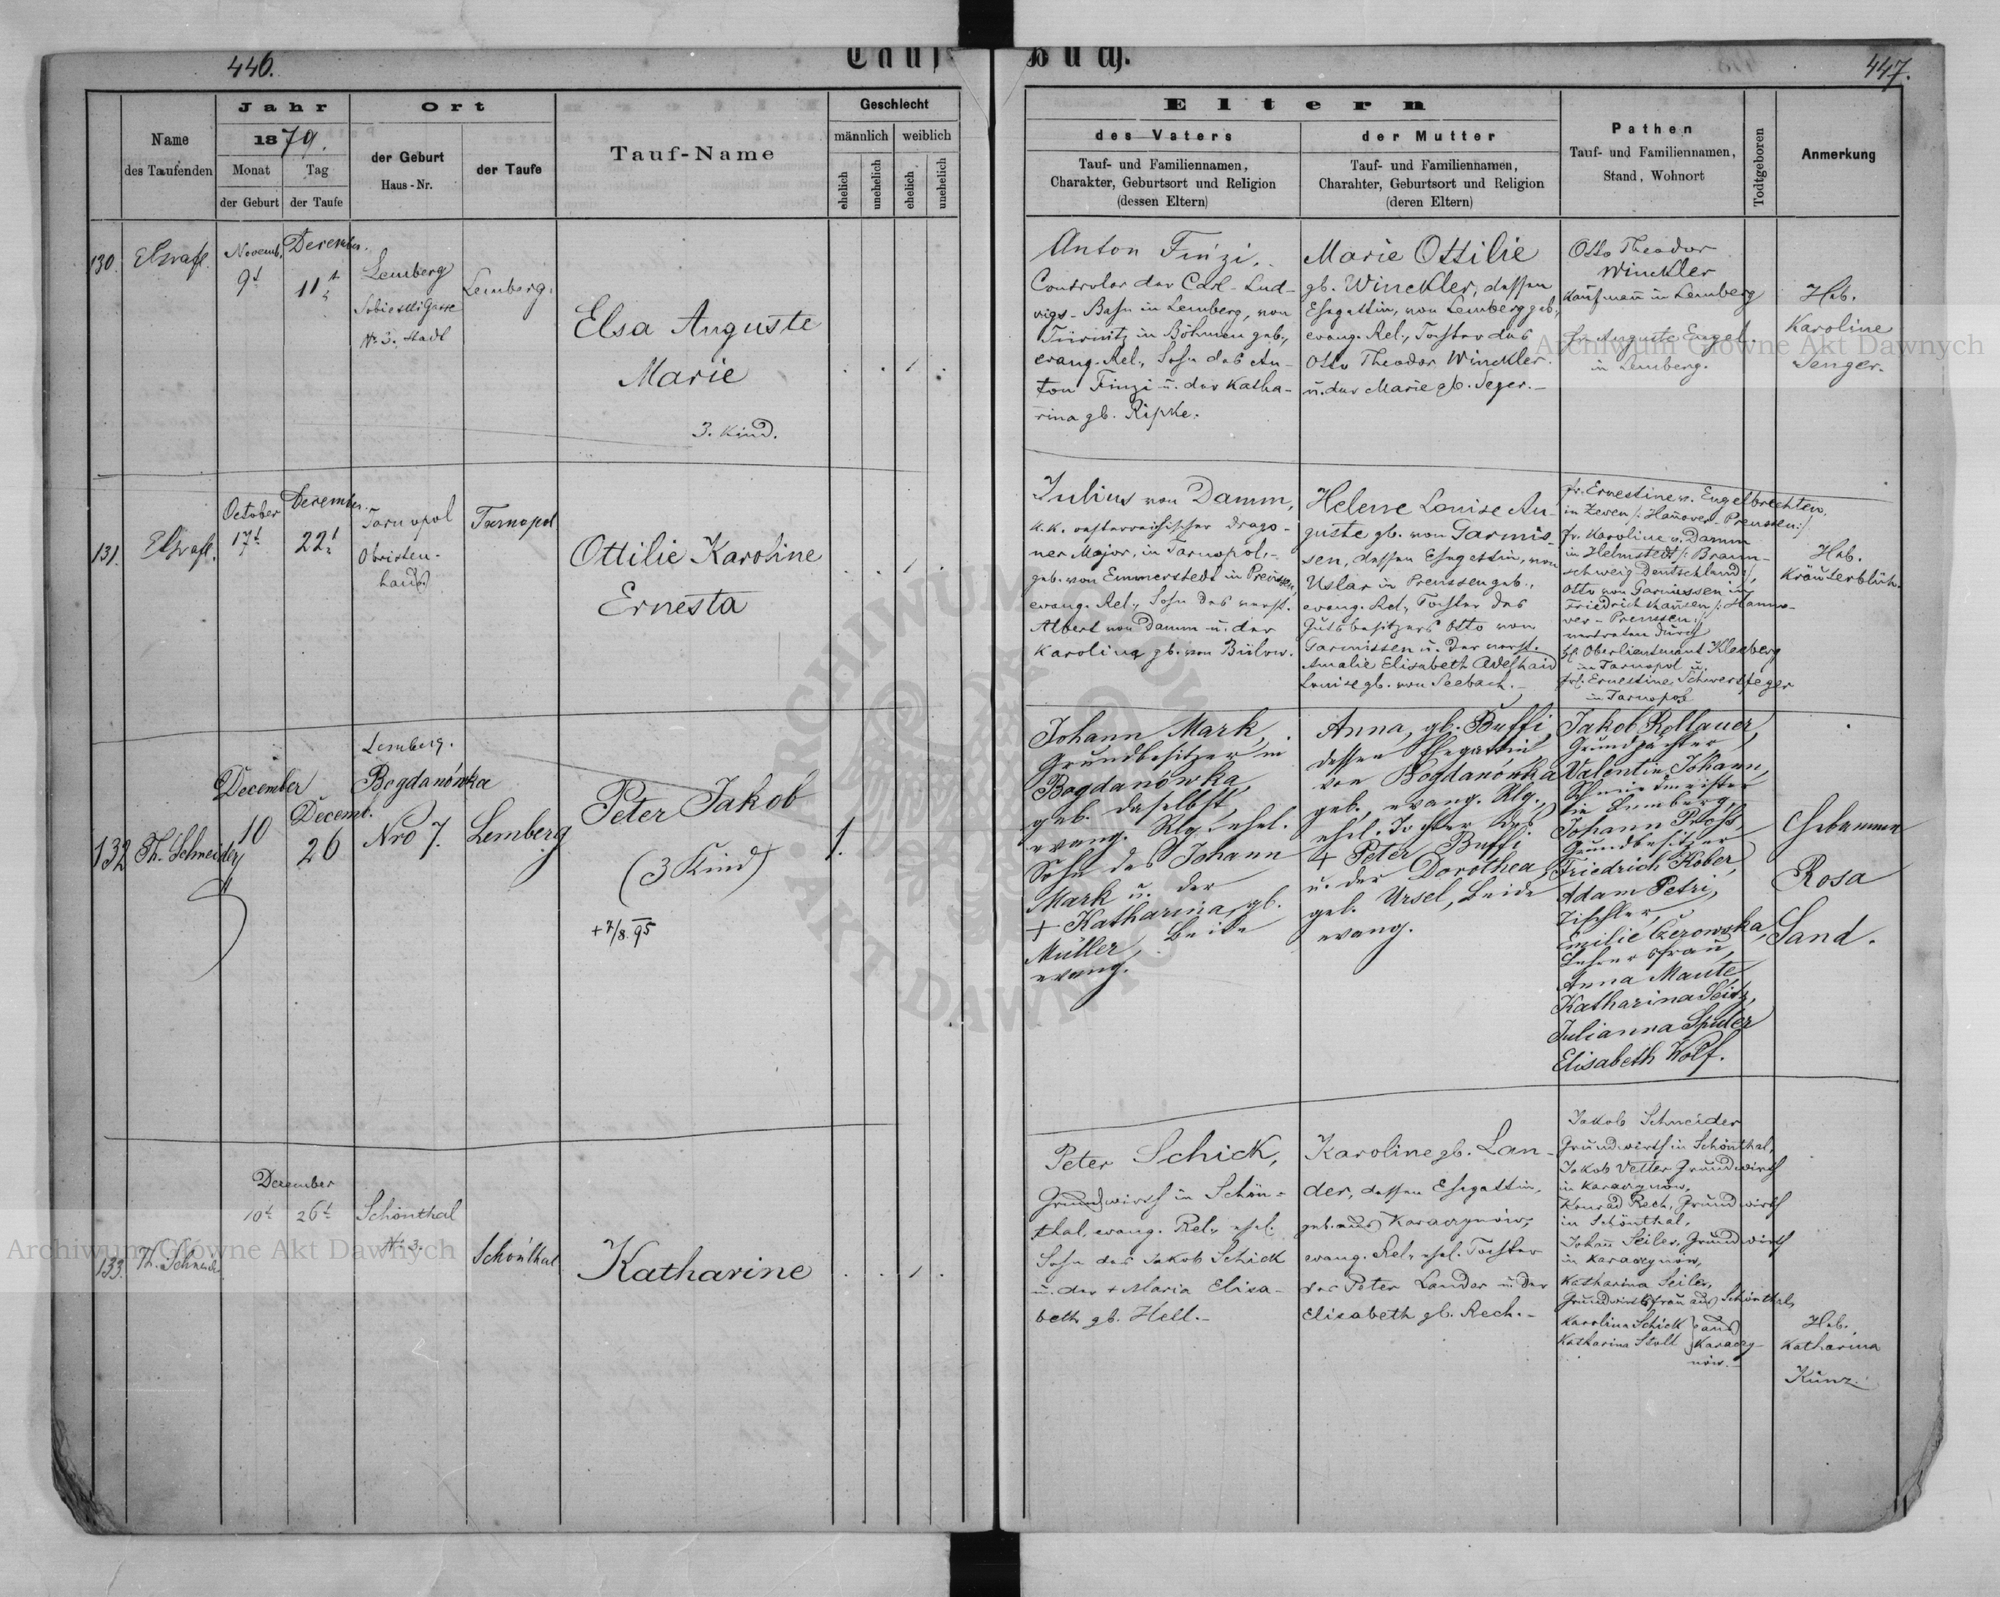 446.
Tauf-
Buch.
447.
Name
des Taufenden
Jahr
1879.
Monat
der Geburt
Tag
der Taufe
Ort
der Geburt
Haus-Nr.
der Taufe
Tauf-Name
Geschlecht
männlich
weiblich
ehelich
unehelich
ehelich
unehelich
Eltern
des Vaters
Tauf- und Familiennamen,
Charakter, Geburtsort und Religion
(dessen Eltern)
der Mutter
Tauf- und Familiennamen,
Charahter, Geburtsort und Religion
(deren Eltern)
Pathen
Tauf- und Familiennamen,
Stand, Wohnort
Todtgeboren
Anmerkung
130.
Novemb.
9t
December.
11t
Lemberg
Sobieski Gasse
Nr. 3. Stadt
Lemberg.
Elsa Auguste
Marie
3. Kind.
Anton Finzi,
Controlor der Carl-Lud-
wigs-Bahn in Lemberg, von
in Böhmen geb.,
evang. Rel., Sohn des An-
ton Finzi u. der Katha-
rina gb. Ripke.
Marie Ottilie
gb. Winckler, dessen
Ehegattin, von Lemberg geb.,
evang. Rel., Tochter des
Otto Theodor Winckler
u. der Marie gb. Jeger.-
Otto Theodor
Winckler
Kaufmann in Lemberg
Fr. Auguste Engel
in Lemberg.
Heb.
Karoline
Senger.
131.
October
17t
December.
22t
Tarnopol
Obristen-
haus
Tarnopol
Ottilie Karoline
Ernesta
Julius von Damm,
k.k. oesterreichischer Drago-
ner Major, in Tarnopol,
geb. von Emmerstedt in Preussen,
evang. Rel., Sohn des verst.
Albert von Damm u. der
Karolina gb. von Bülow.
Helene Louise Au-
guste gb. von Garmis-
sen, dessen Ehegattin, von
Uslar in Preussen geb.,
evang. Rel., Tochter des
Gutsbesitzers Otto von
Garmissen u. der verst.
Amalie Elisabeth Adelhaid
Louise gb. von Seebach.-
Fr. Ernestine v. Engelbrechten,
in Zeven /: Hannover-Preussen:/
Fr. Karoline v. Damm
in Helmstedt /: Braun-
schweig Deutschland:/,
Otto von Garmissen in
Friedrichshausen /: Hanno-
ver-Preussen:/
vertreten durch
H. Oberlieutnant Kleeberg
in Tarnopol u.
Frl. Ernestine Schwerdtfeger
in Tarnopol
Heb.
Kräuterblüh.
132
Th. Schneider
December
10
Decemb.
26
Lemberg.
Bogdanówka
Nro 7.
Lemberg
Peter Jakob
(3 Kind)
+ 7/8. 95
1.
Johann Mark,
Grundbesitzer in
Bogdanówka,
geb. daselbst,
evang. Rlg. ehel.
Sohn des Johann
Mark u. der
+ Katharina, gb.
Müller, beide
evang.
Anna, gb. Buffi,
dessen Ehegattin
von Bogdanówka
geb., evang. Rlg.,
ehel. Tochter des
+ Peter Buffi
u. der Dorothea
geb. Ursel, beide
evang.
Jakob Kollauer,
Grundpächter
Valentin Johann,
Schmiedmeister
in Lemberg,
Johann Pross,
Grundbesitzer
Friedrich Kober,
Adam Petri,
Tischler,
Emilie Czerowska,
Lehrersfrau,
Anna Maute
Katharina Seitz,
Julianna Spuler
Elisabeth Wolf.
Hebamme
Rosa
Sand.
133.
Th. Schneider
December
10t
26t
Schönthal
Nr. 3.
Schönthal
Katharine
Peter Schick,
Grundwirth in Schön-
thal, evang. Rel., ehel.
Sohn des Jakob Schick
u. der + Maria Elisa-
beth gb. Hell.-
Karoline gb. Lan-
der, dessen Ehegattin,
geb. aus Karaczynów,
evang. Rel., ehel. Tochter
des Peter Lander u. der
Elisabeth gb. Rech.-
Jakob Schneider
Grundwirth in Schönthal,
Jakob Vetter Grundwirth
in Karaczynów,
Konrad Rech, Grundwirth
in Schönthal,
Johann Seiler, Grundwirth
in Karaczynów,
Katharina Seiler,
Grundwirthsfrau aus Schönthal,
Karolina Schick } aus
Katharina Stoll } Karaczy-
nów.-
Heb.
Katharina
Kunz.
Archiwum Główne Akt Dawnych
Archiwum Główne Akt Dawnych
ARCHIWUM GŁÓWNE
AKT DAWNYCH